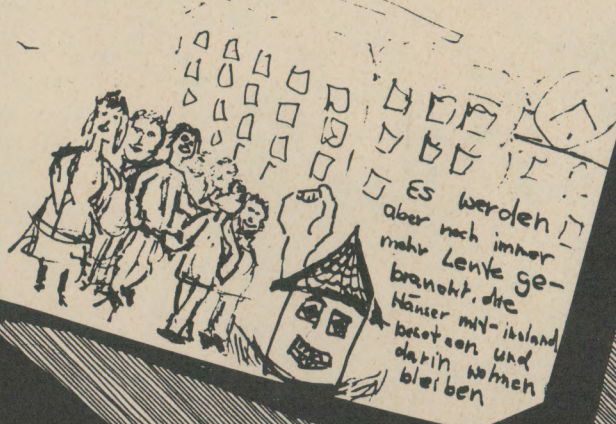 Es werden
aber noch immer
mehr Leute ge-
braucht, die
Häuser mit-instand
besetzen und
darin wohnen
bleiben